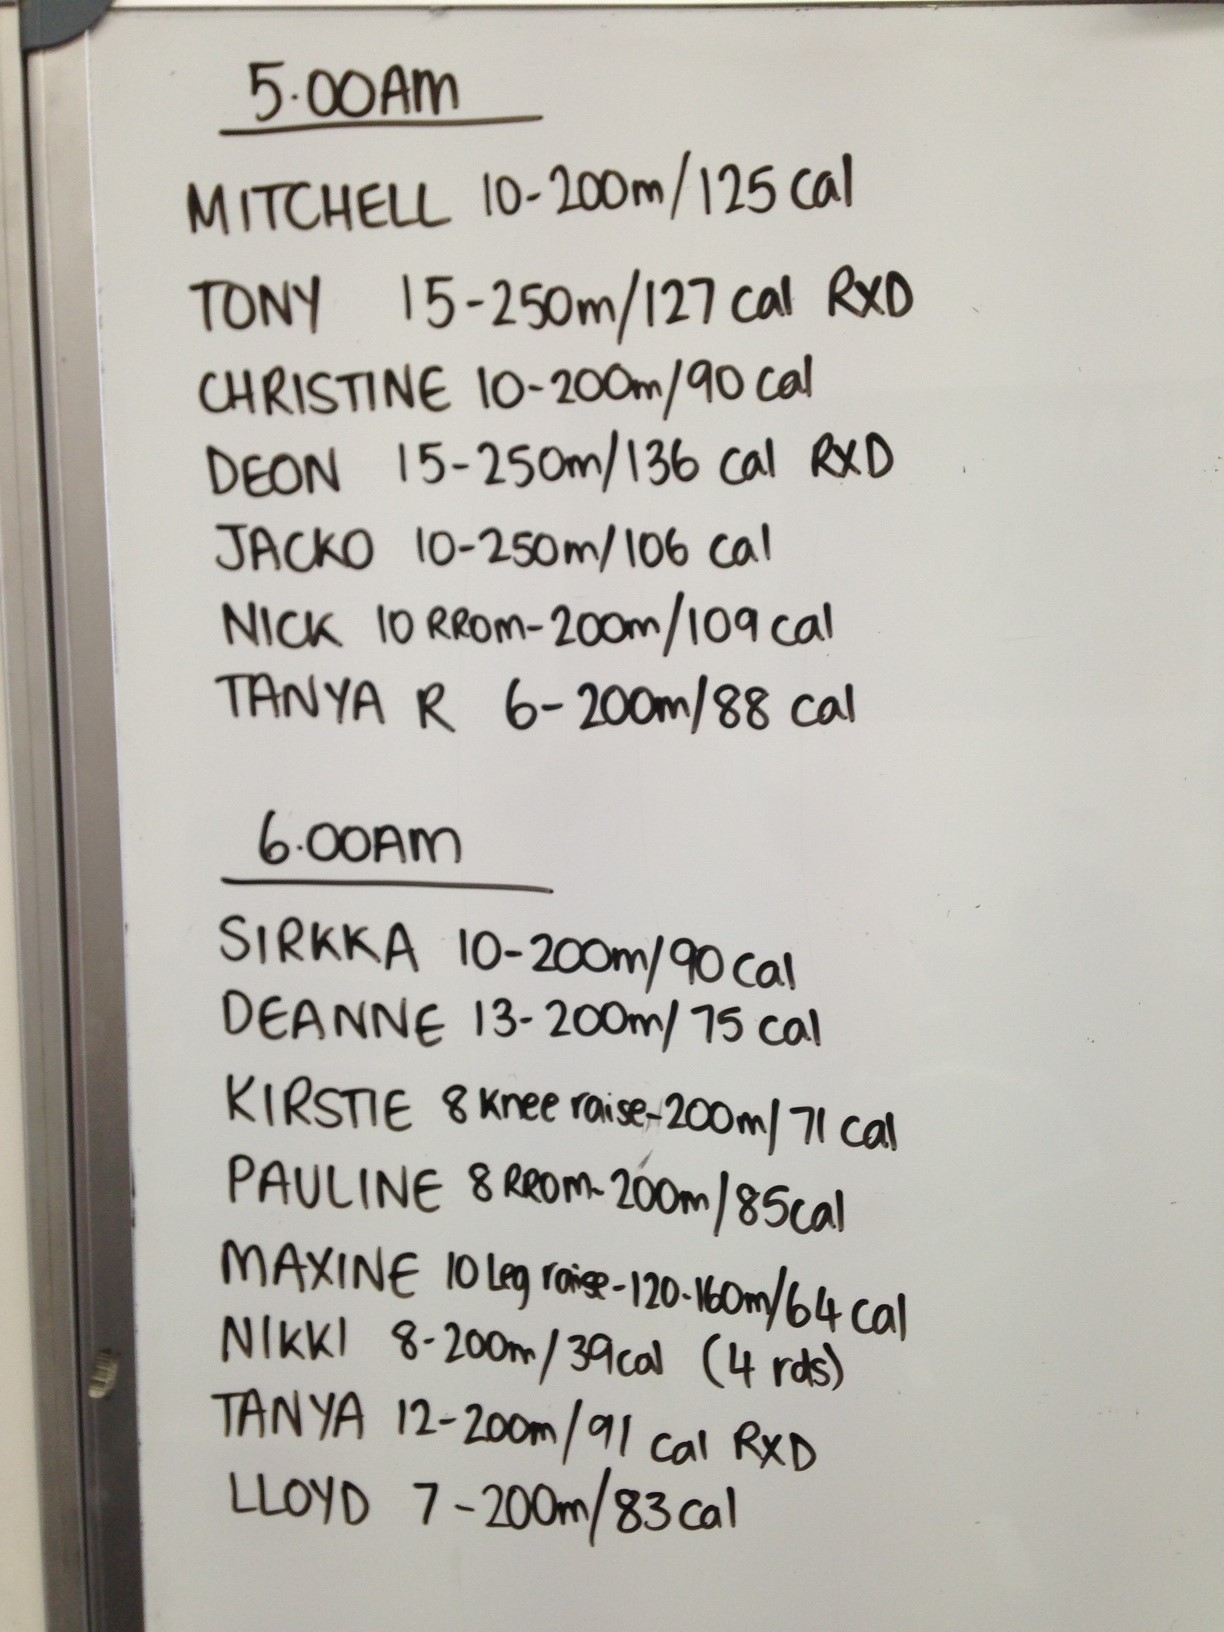 5.00AM
MITCHELL 10-200m/125 cal
TONY 15-250m/127 cal RXD
CHRISTINE 10-200m/90 cal
DEON 15-250m/136 cal RXD
JACKO 10-250m/106 cal
NICK 10 RROM-200m/109 cal
TANYA R 6-200m/88 cal
6.00AM
SIRKKA 10-200m/90 cal
DEANNE 13-200m/75 cal
KIRSTIE 8 knee raise-200m/71 cal
PAULINE 8 RROM-200m/85cal
MAXINE 10 Leg raise-120-160m/64 cal
NIKKI 8-200m/39cal (4 rds)
TANYA 12-200m/91 cal RXD
LLOYD 7-200m/83 cal